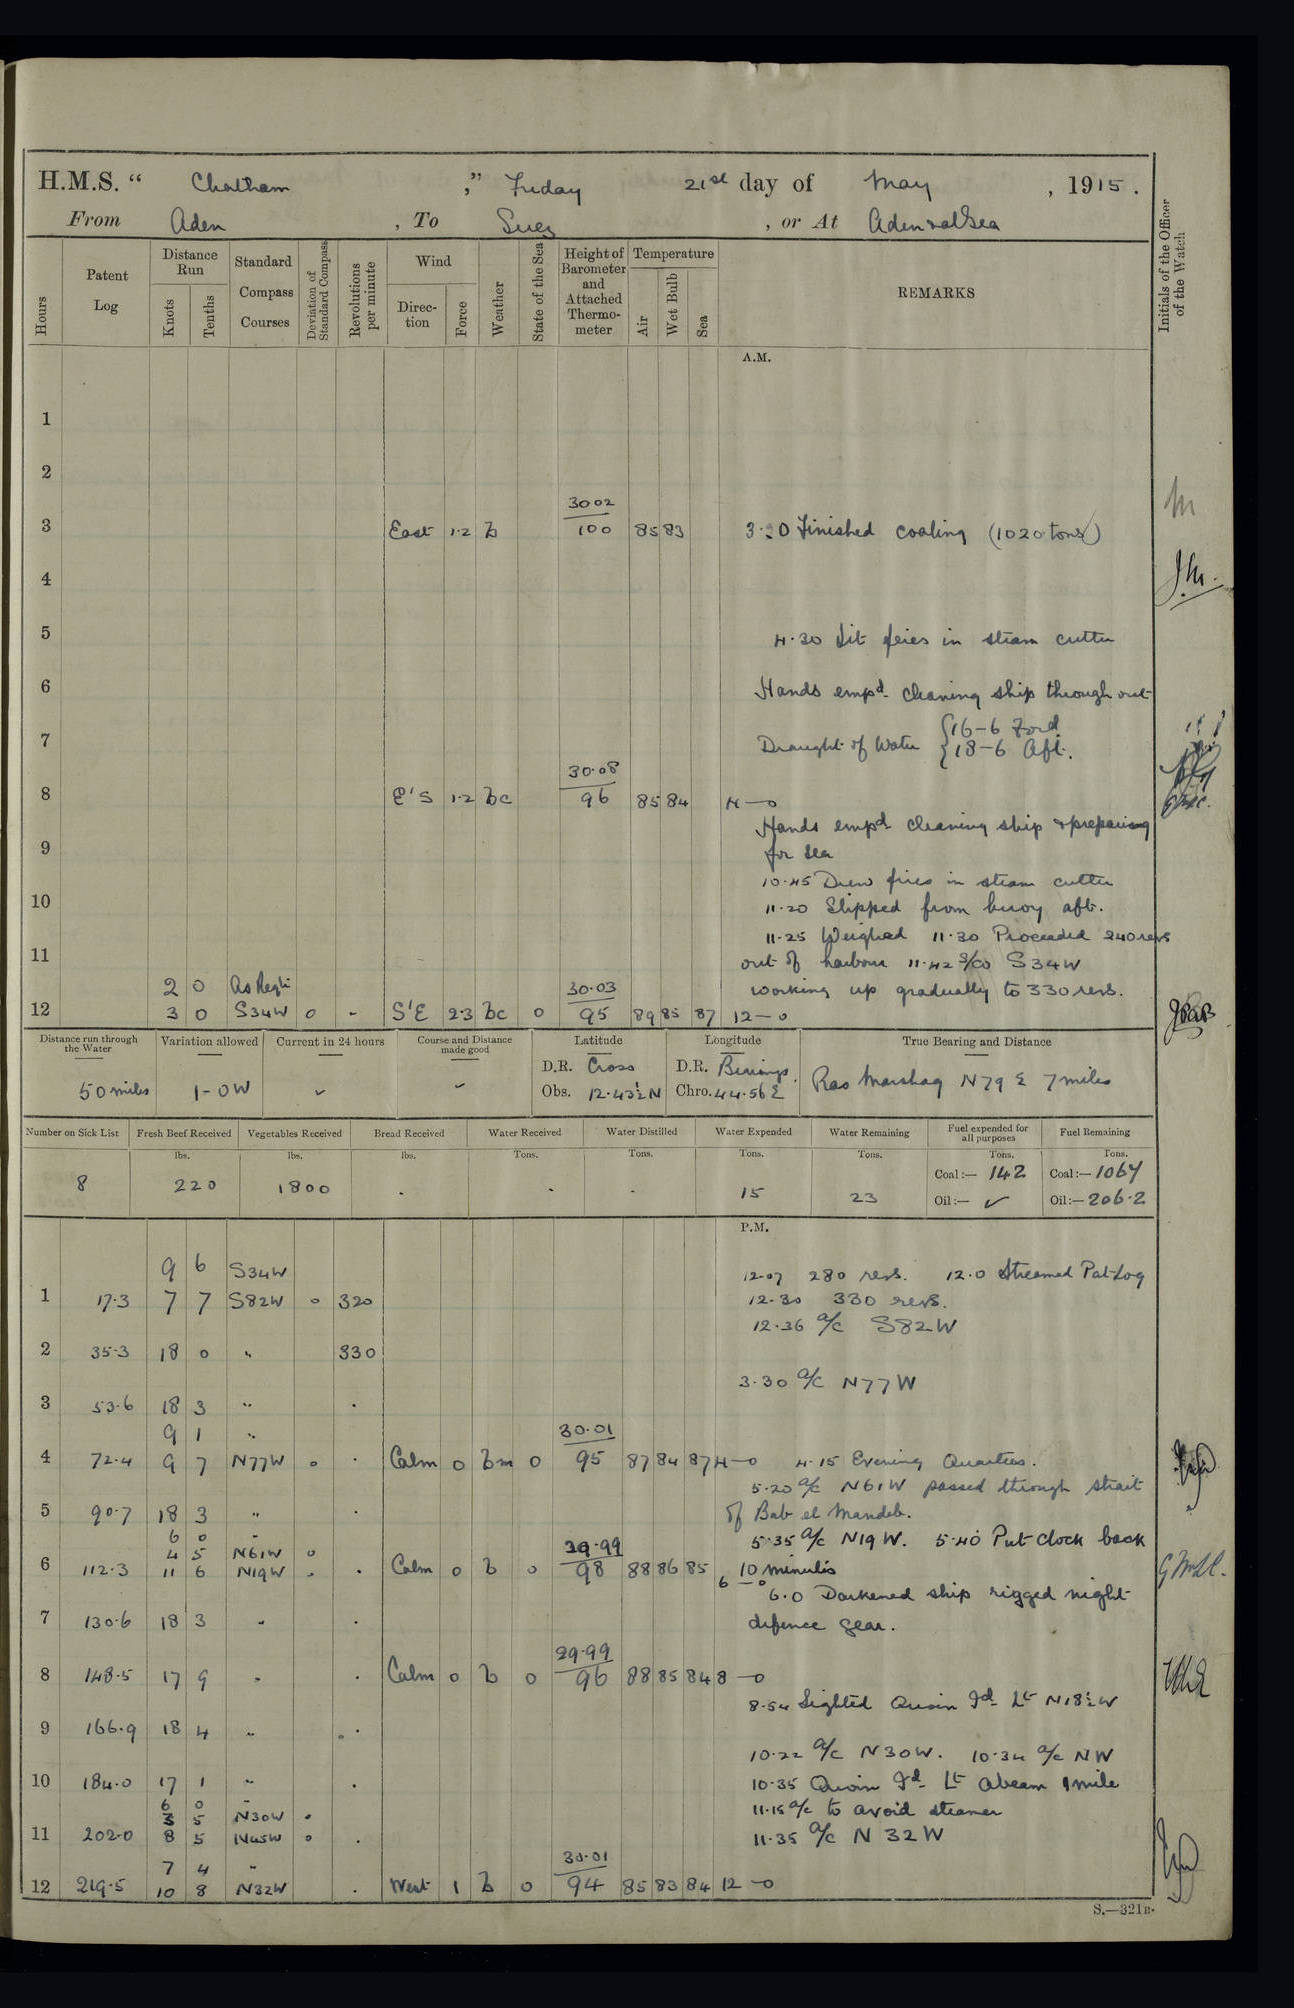 H.M.S. “ Chatham ,” Friday 21st day of May , 1915 .
From Aden , To Suez , or At Aden & at Sea
Hours
Patent Log
Distance Run
Knots
Tenths
Standard Compass Courses
Deviation of Standard Compass
Revolutions per minute
Wind
Direction
Force
Weather
State of the Sea
Height of Barometer and Attached Thermometer
Temperature
Air
Wet Bulb
Sea
REMARKS
Initials of the Officer of the Watch
A.M.
1
2
30.02
3 East 1.2 b 100 85 83 3.30 Finished coaling (1020 tons)
4
5 4.30 Lit fires in steam cutter
6 Hands empd. cleaning ship throughout
7 Draught of Water { 16-6 Ford.
18-6 Aft.
30.08
8 E'S 1.2 bc 96 85 84 4—0
Hands empd cleaning ship & preparing
9 for sea
10.45 Drew fires in steam cutter
10 11.20 Slipped from buoy aft.
11.25 Weighed 11.30 Proceeded 240 revs
11 out of harbour 11.42 s/co S34W
2 0 As Reqte 30.03 working up gradually to 330 revs.
12 3 0 S34W 0 - S'E 2.3 bc 0 95 89 85 87 12—0
Distance run through the Water
50 miles
Variation allowed
1-0W
Current in 24 hours
✓
Course and Distance made good
✓
Latitude
D.R. Cross
Obs. 12.43½N
Longitude
D.R. Bearings.
Chro. 44.56E
True Bearing and Distance
Ras Marshag N79E 7 miles
Number on Sick List
8
Fresh Beef Received
lbs.
220
Vegetables Received
lbs.
1800
Bread Received
lbs.
.
Water Received
Tons.
.
Water Distilled
Tons.
.
Water Expended
Tons.
15
Water Remaining
Tons.
23
Fuel expended for all purposes
Tons.
Coal:— 142
Oil:— ✓
Fuel Remaining
Tons.
Coal:— 1067
Oil:— 206.2
P.M.
9 6 S34W 12.07 280 revs. 12.0 Streamed Pat Log
1 17.3 7 7 S82W 0 320 12.30 330 revs.
12.36 a/c S82W
2 35.3 18 0 " 330
3.30 a/c N77W
3 53.6 18 3 " .
9 1 " 30.01
4 72.4 9 7 N77W 0 . Calm 0 bm 0 95 87 84 87 4—0 4.15 Evening Quarters.
5.20 a/c N61W passed through strait
5 90.7 18 3 " . of Bab el Mandeb.
6 0 " 5.35 a/c N19W. 5.40 Put clock back
4 5 N61W 0 29.99
6 112.3 11 6 N19W . . Calm 0 b 0 98 88 86 85 10 minutes
6—0
6.0 Darkened ship rigged night
7 130.6 18 3 " . defence gear.
29.99
8 148.5 17 9 " . Calm 0 b 0 96 88 85 84 8—0
8.54 Sighted Quoin Id. Lt N18½W
9 166.9 18 4 " .
10.22 a/c N30W. 10.34 a/c NW
10 184.0 17 1 " . 10.35 Quoin Id. Lt abeam 1 mile
6 0 " 11.15 a/c to avoid steamer
3 5 N30W 0
11 202.0 8 5 N45W 0 . 11.35 a/c N 32 W
7 4 " 30.01
12 219.5 10 8 N32W . West 1 b 0 94 85 83 84 12—0
S.—321B.